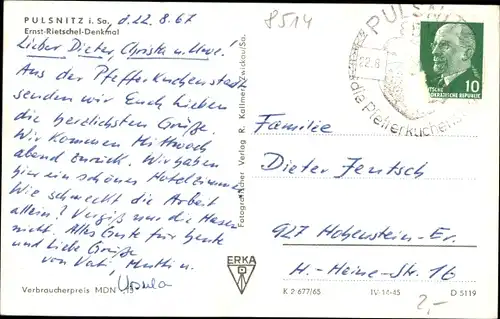 PULSNITZ i. Sa., d. 22.8.67
Ernst-Rietschel-Denkmal
Lieber Dieter, Christa u. Uwe!
Aus der Pfefferkuchenstadt
senden wir Euch Lieben
die herzlichsten Grüße.
Wir kommen Mittwoch
abend zurück. Wir haben
hier ein schönes Hotelzimmer.
Wie schmeckt die Arbeit
allein? Vergiß nur die Hasen
nicht. Alles Gute für heute
und liebe Grüße
von Vati, Mutti u.
Ursula
Verbraucherpreis MDN -,15
Fotografischer Verlag R. Kallmer, Zwickau/Sa.
ERKA
8514
PULSNITZ
22.8
die Pfefferkuchen
DEUTSCHE
DEMOKRATISCHE REPUBLIK
10
Familie
Dieter Jentsch
927 Hohenstein-Er.
H.-Heine-Str. 16
K 2 677/65 IV-14-45 D 5119
2,-